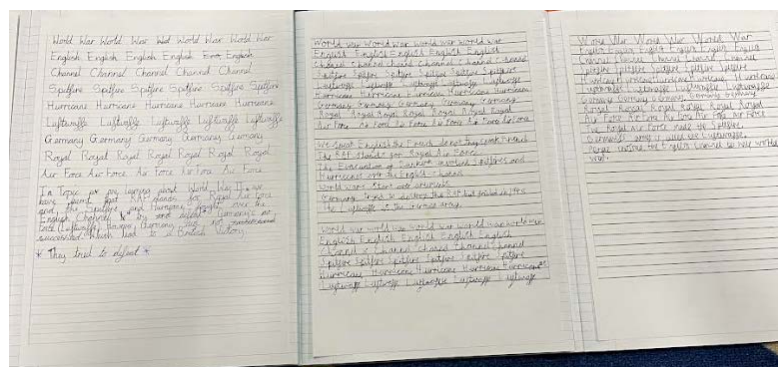 World War World War World War World War
English English English English English
Channel Channel Channel Channel Channel
Spitfire Spitfire Spitfire Spitfire Spitfire
Hurricane Hurricane Hurricane Hurricane Hurricane
Luftwaffe Luftwaffe Luftwaffe Luftwaffe Luftwaffe
Germany Germany Germany Germany Germany
Royal Royal Royal Royal Royal Royal
Air Force Air Force Air Force Air Force Air Force
In Topic we are learning about World War II we
have found that RAF stands for Royal Air Force
and the Spitfire and Hurricane fought over the
English Channel * try and defeat Germany's air
force (Luftwaffe). However Germany did not
successful. Which lead to a British Victory.
* They tried to defeat *
World war World war world war world war
English English English English English
Channel Channel Channel Channel Channel
Spitfire Spitfire Spitfire Spitfire Spitfire
Luftwaffe Luftwaffe Luftwaffe Luftwaffe
Hurricane Hurricane Hurricane Hurricane
Germany Germany Germany Germany Germany
Royal Royal Royal Royal Royal Royal
Air Force Air Force Air Force Air Force Air Force
We speak English the French do not they speak French
The RAF stands for Royal Air Force
The Evacuation of Dunkirk involved Spitfires and
Hurricanes over the English Channel
World wars
Germany tried to destroy the RAF but failed
the Luftwaffe is the German army
World war world war world war world war world war
English English English English English
Channel Channel Channel Channel Channel
Spitfire Spitfire Spitfire Spitfire Spitfire
Hurricane Hurricane Hurricane Hurricane Hurricane
Luftwaffe Luftwaffe Luftwaffe Luftwaffe Luftwaffe
World War World War World War
English English English English English English
Channel Channel Channel Channel Channel
Spitfire Spitfire Spitfire Spitfire Spitfire
Hurricane Hurricane Hurricane Hurricane
Luftwaffe Luftwaffe Luftwaffe Luftwaffe
Germany Germany Germany Germany Germany
Royal Royal Royal Royal Royal Royal
Air Force Air Force Air Force Air Force Air Force
The Royal Air Force the Spitfire.
Germany's army is called the Luftwaffe.
the English Channel in the world
war.